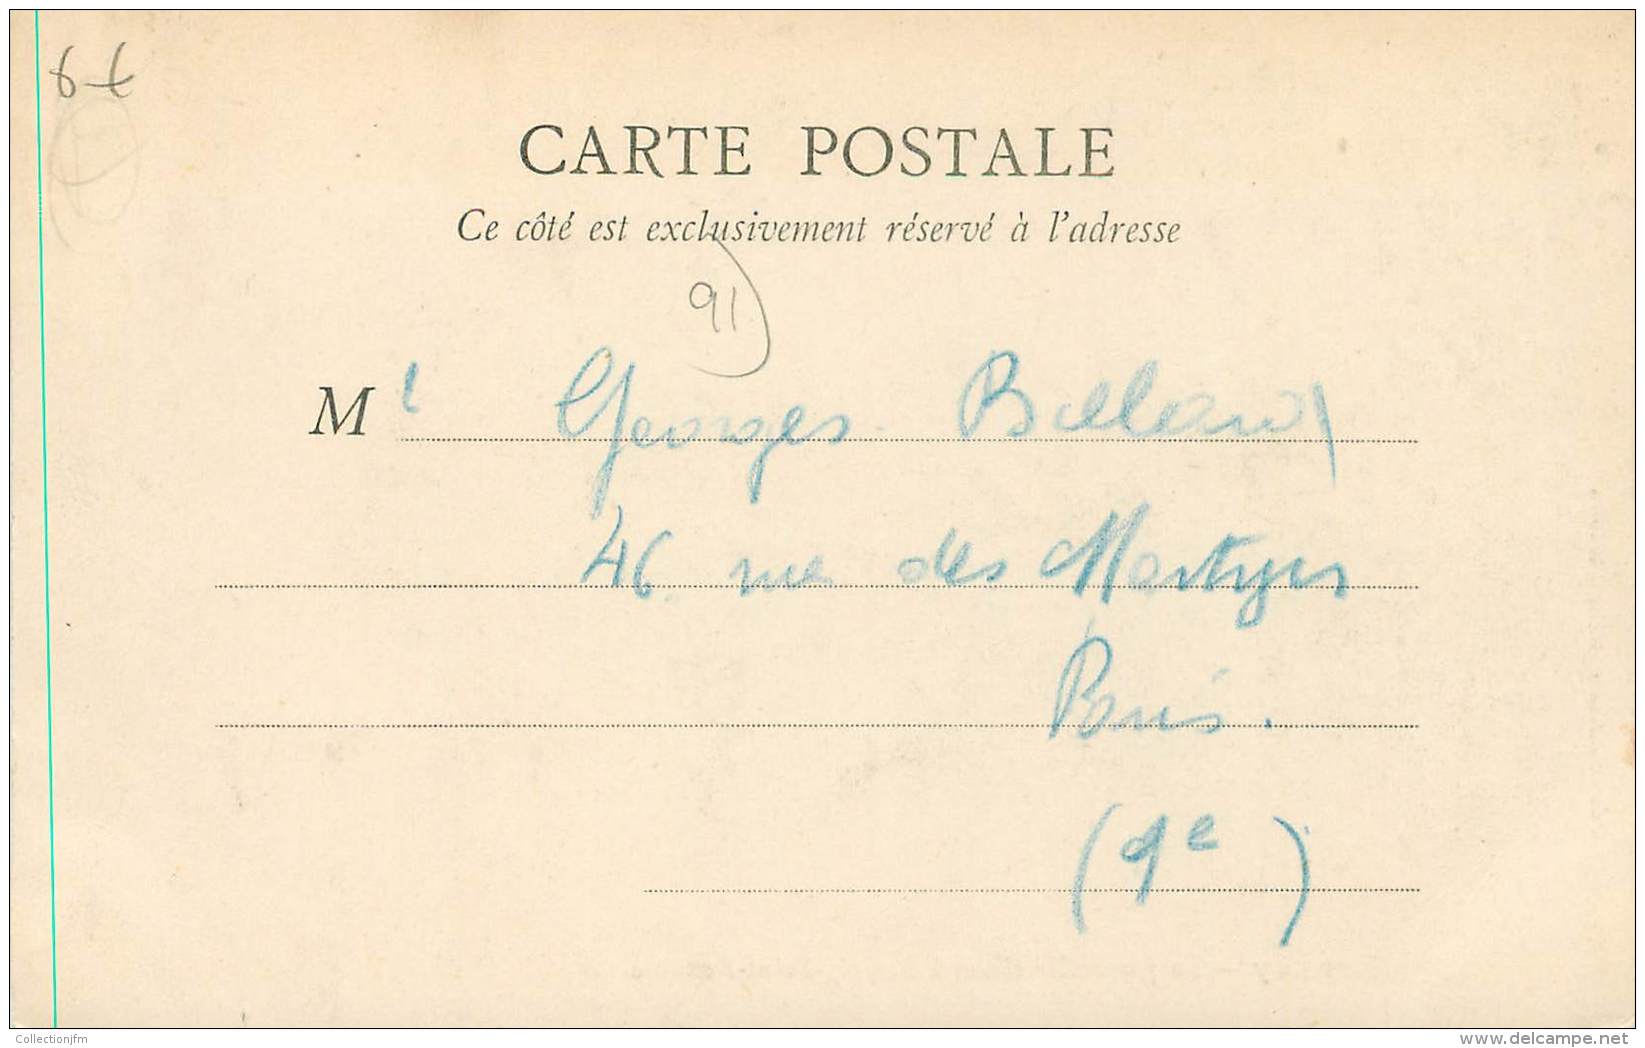 6 €
CARTE POSTALE
Ce côté est exclusivement réservé à l'adresse
91
M r Georges
46 rue des Martyrs
Paris.
(9e)
Collectionjfm
www.delcampe.net